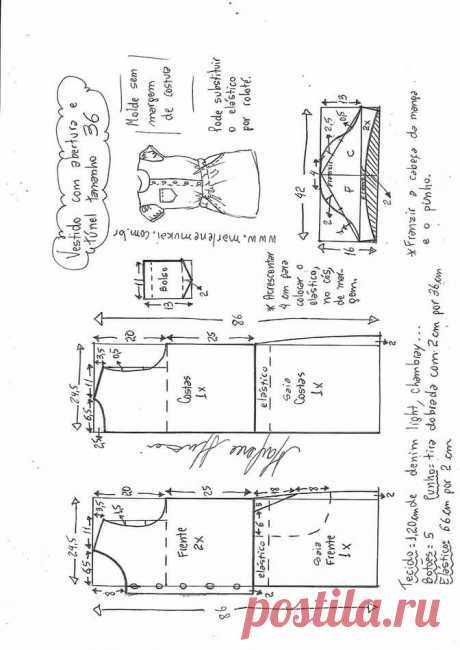 Vestido com abertura e
túnel tamanho 36
Molde sem
margem
de costura
Pode substituir
o elástico
por rolotê.
www.marlenemukai.com.br
42
4
2,5
0,5
13
2
1/2
16
2
F
C
2x
Franzir
*Franzir a cabeça da manga
e o punho.
Bolso
11
13
2
*Acrescentar
4 cm para
colocar o
elástico,
no cós,
de mar
gem.
86
20
25
24,5
3,5
11
6,5
2,5
0,5
Costas
1x
elástico
saia
Costas
1x
2
Marlene Mukai
20
25
18
8
24,5
3,5
11
6,5
1,5
8
Frente
2x
elástico
6
3
Saia
Frente
1x
2
2
86
Tecido=1,20cm de denim light, chambray...
botões=5 Punho=tira dobrada com 2 cm por 26cm
Elástico=66cm por 2 cm
postila.ru